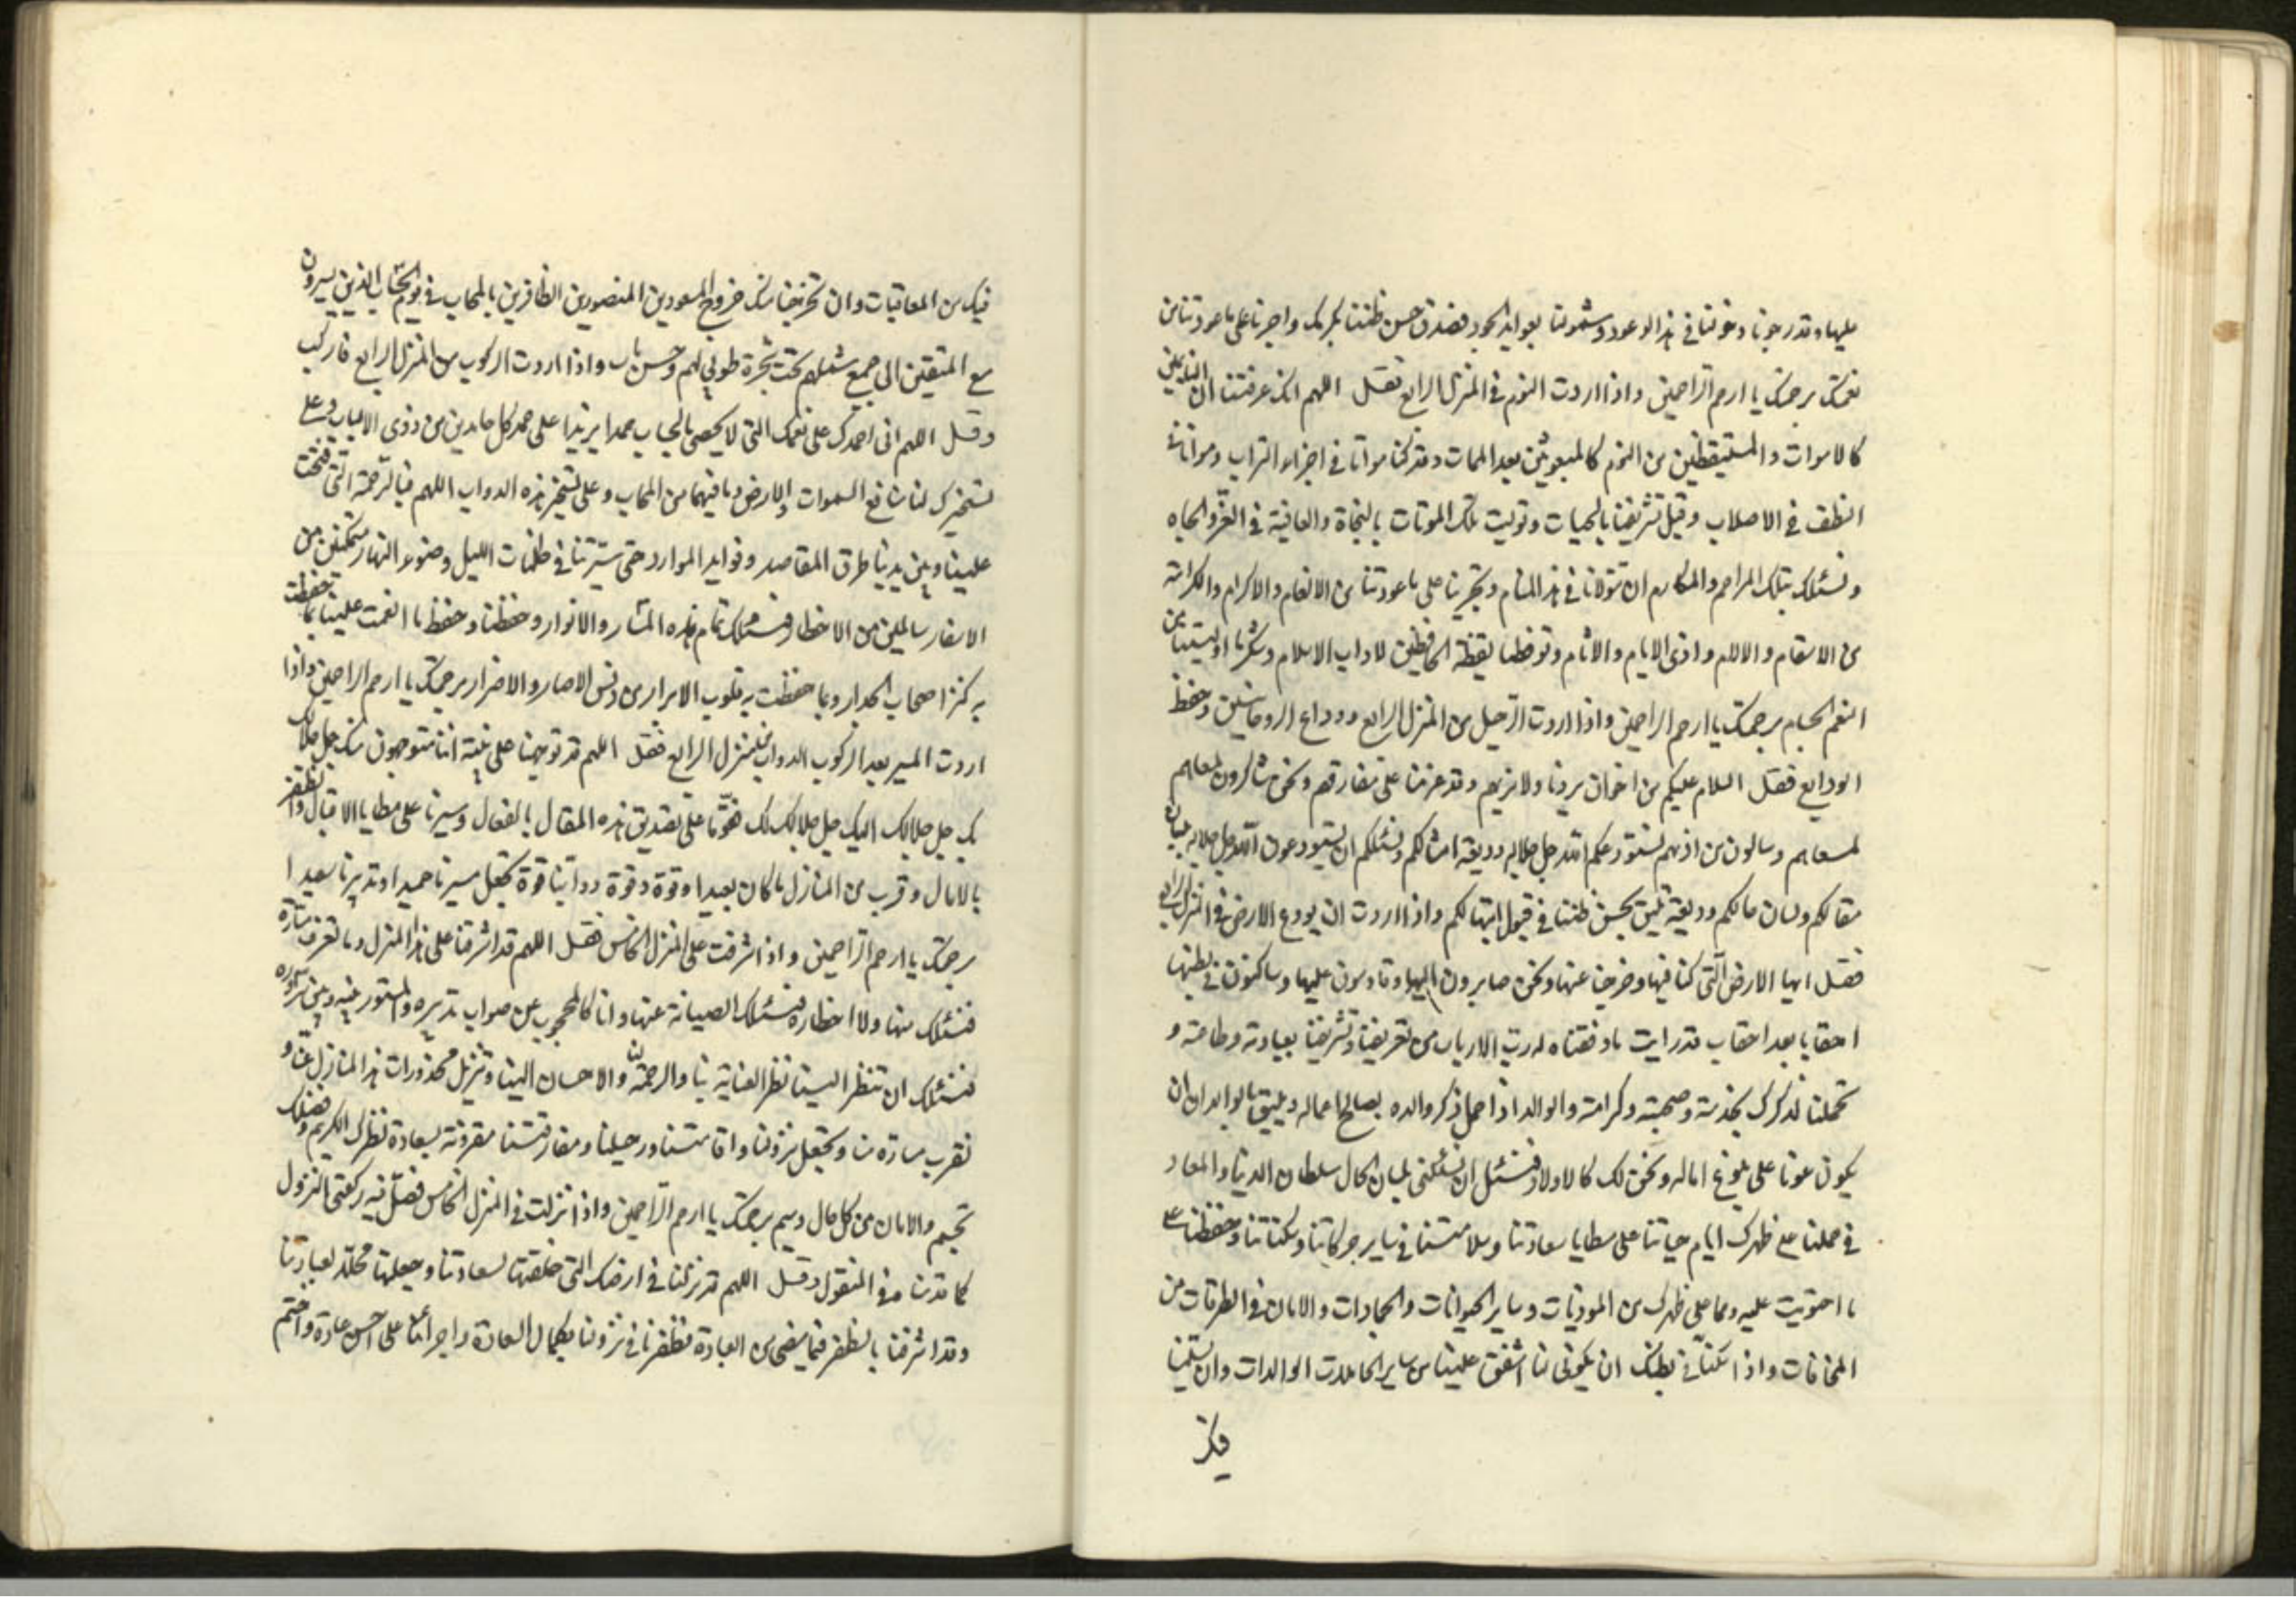 عليها وقد رجونا دخولنا في هذا الوعود وشمولنا بعوايد الجود فصدق حسن ظننا بكرمك واجرنا على ما عودتنا من
نعمك برحمتك يا ارحم الراحمين واذا اردت النوم في المنزل الرابع فقل اللهم انك عرفتنا ان النايمين
كالاموات والمستيقظين من النوم كالمبعوثين بعد الممات وقد كنا مواتا في اجزاء التراب ومواتا في
النطف في الاصلاب وقبل تشريفنا بالحيات وتوليت تلك الموتات بالنجاة والعافية في العز والجاه
ونسئلك بتلك المراحم والمكارم ان تتولانا في هذا المنام وتجرينا على ما عودتنا من الانعام والاكرام والكرامة
من الاسقام والالام واذى الايام والاثام وتوقظنا يقظة الحافظين لاداب الاسلام وشكر ما اوليتنا من
النعم الجسام برحمتك يا ارحم الراحمين واذا اردت الرحيل من المنزل الرابع ووداع الروحانيين وحفظ
الودايع فقل السلام عليكم من اخوان يرونا ولا نريهم وقد عزمنا على مفارقتهم ونحن شاكرون لمعاهم
لمسعاهم وسالون من اذيهم نستودعكم الله جل جلاله وديعة امثالكم ونسئلكم ان تستودعون الله جل جلاله بلسان
مقالكم ولسان حالكم وديعة تليق بحسن ظننا في قبول ابتهالكم واذا اردت ان يودع الارض في المنزل الرابع
فقل ايها الارض التي كنا فيها وخرجنا عنها ونحن صايرون اليها وقادمون عليها وساكنون في بطنها
احقابا بعد احقاب قد رايت ما وفقناه له رب الارباب من تعريفنا وتشريفنا بعبادته وطاعته و
تحملنا لذكرك بخدمته وصحبته وكرامته والوالد اذا حمل ذكر والده بصالح اعماله ويليق بالوالد ان
يكون عونا على بلوغ اماله ونحن لك كالاولاد فنسئل ان تسئلني بلسان الحال سلطان الدنيا والمعاد
في حملنا على ظهرك ايام حياتنا على مطايا سعادتنا وسلامتنا في ساير حركاتنا وسكناتنا وحفظنا على
ما احتويت عليه ومما على ظهرك من الموذيات وساير الحيوانات والجمادات والامان في الطرقات من
المخافات واذا سكنا في بطنك ان يكوني لنا اشفق علينا من ساير الحاملات الوالدات وان تسلمينا
فيك من المعاقبات وان تخرجينا منك خروج المسعودين المنصورين الظافرين بالمحاب في يوم الحساب الذين يسيرون
مع المتقين الى جمع شملهم تحت شجرة طوبى لهم وحسن ماب واذا اردت الركوب من المنزل الرابع فاركب
وقل اللهم اني احمدك على نعمك التي لا يحصى بالحساب حمدا يزيدا على حمد كل حامدين من ذوي الالباب وعلى
تسخيرك لنا منافع السموات والارض وما فيهما من المحاب وعلى تسخير هذه الدواب اللهم فبالرحمة التي فتحت
علينا وبين يدينا طرق المقاصد وفوايد الموارد حتى سيرتنا في ظلمات الليل وضوء النهار متمكنين من
الاسفار سالمين من الاخطار فنسئلك تمام هذه المسار والانوار وحفظنا وحفظ ما انعمت علينا بما حفظت
به كنز اصحاب الجدار وبما حفظت به قلوب الابرار من دنس الاصار والاضرار برحمتك يا ارحم الراحمين واذا
اردت المسير بعد الركوب الدواب من المنزل الرابع فقل اللهم قد توجهنا على نية اننا متوجهون منك جل جلالك
بك جل جلالك اليك جل جلالك لك فقونا على تصديق هذه المقال بالفعال وسيرنا على مطايا الاقبال والظفر
بالامال وقرب من المنازل ما كان بعيدا وقوة دوابنا قوة تجعل مسيرنا حميدا وتدبيرنا سعيدا
برحمتك يا ارحم الراحمين واذا اشرفت على المنزل الخامس فقل اللهم قد اشرفنا على هذا المنزل وما نعرف مساره
فنسئلك منها ولا اخطاره فنسئلك الصيانة عنها وانا كالمحجوب عن صواب تدبيره والمستور عنه وعن شروره
فنسئلك ان تنظر الينا نظر العناية بنا والرحمة لنا والاحسان الينا وتزيل محذورات هذا المنازل عنا و
تقرب مساره منا وتجعل نزولنا واقامتنا ورحيلنا ومفارقتنا مقرونة بسعادة نظرك الكريم وفضلك
تجيم والامان من كل حال وسيم برحمتك يا ارحم الراحمين واذا نزلت في المنزل الخامس فصل فيه ركعتى النزول
كما قدمناه في المنقول وقل اللهم قد نزلنا في ارضك التي خلقتها لسعادتنا وجعلتها محلا لعبادتنا
وقد اشرفنا بالظفر فيما يفضى من العبادة فظفرنا في نزولنا بكمال السعادة واجرائنا على احسن عادة واختم